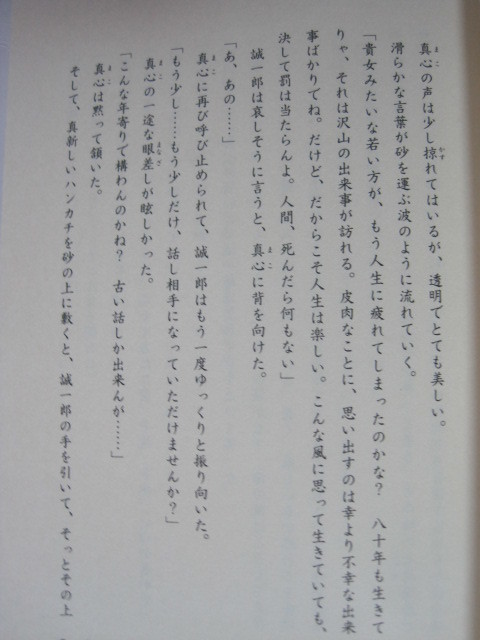 真心の声は少し掠れてはいるが、透明でとても美しい。
滑らかな言葉が砂を運ぶ波のように流れていく。
「貴女みたいな若い方が、もう人生に疲れてしまったのかな？　八十年も生きて
りゃ、それは沢山の出来事が訪れる。皮肉なことに、思い出すのは幸より不幸な出来
事ばかりでね。だけど、だからこそ人生は楽しい。こんな風に思って生きていても、
決して罰は当たらんよ。人間、死んだら何もない」
誠一郎は哀しそうに言うと、真心に背を向けた。
「あ、あの……」
真心に再び呼び止められて、誠一郎はもう一度ゆっくりと振り向いた。
「もう少し……もう少しだけ、話し相手になっていただけませんか？」
真心の一途な眼差しが眩しかった。
「こんな年寄りで構わんのかね？　古い話しか出来んが……」
真心は黙って頷いた。
そして、真新しいハンカチを砂の上に敷くと、誠一郎の手を引いて、そっとその上